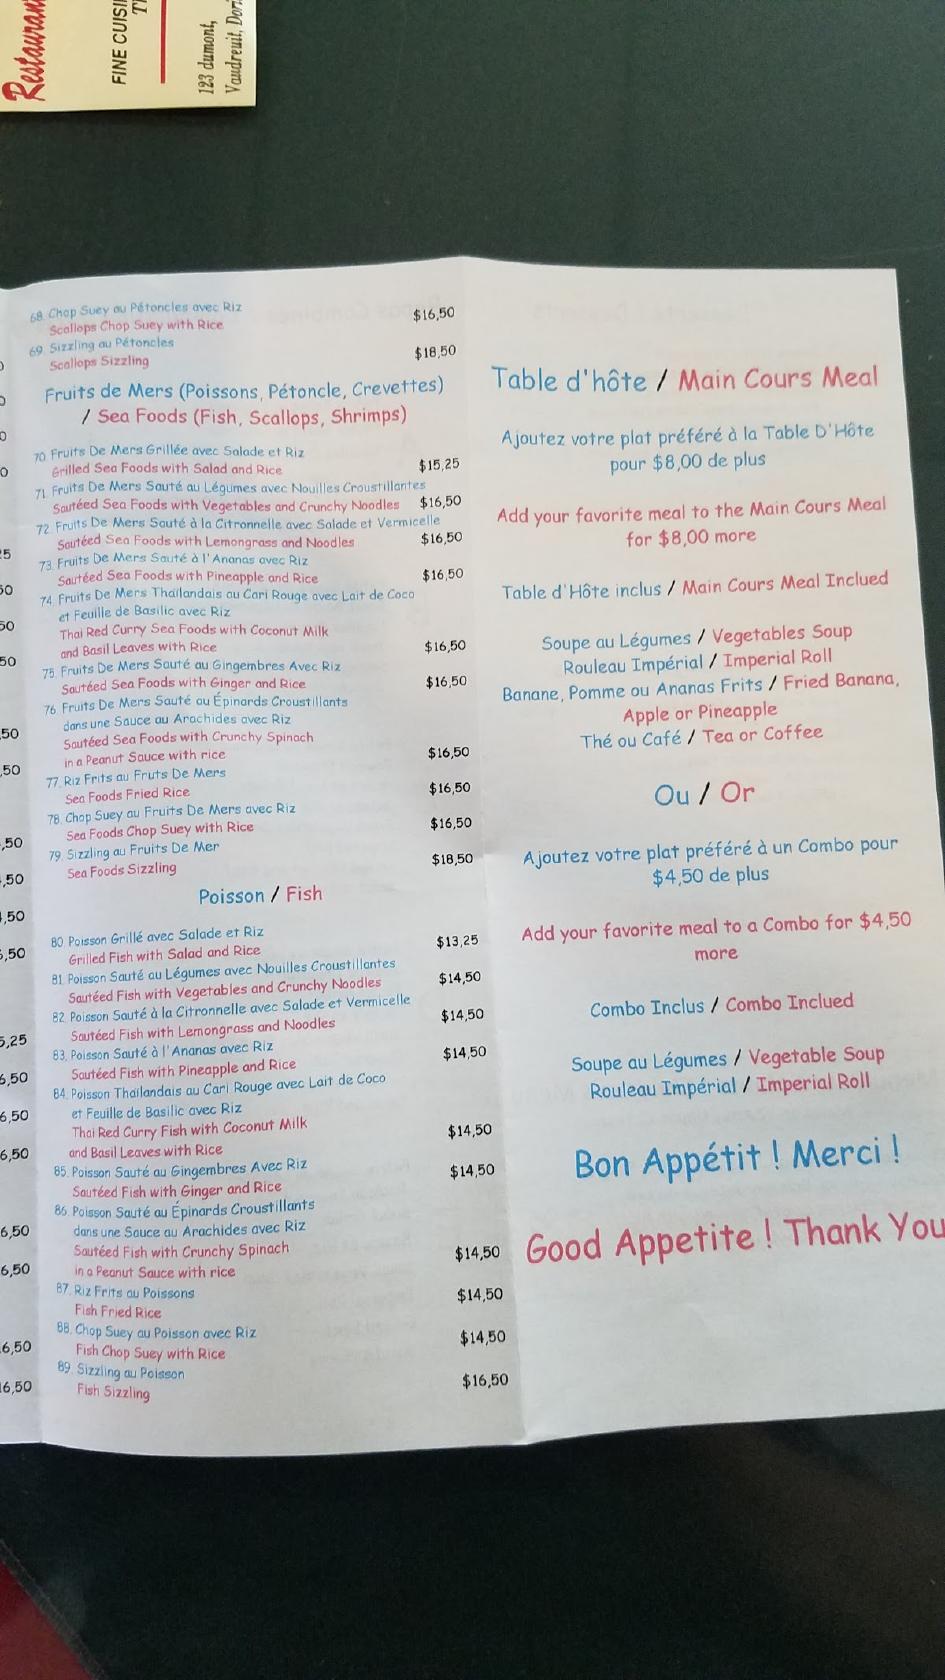 Restaurant
FINE CUISI
123 dumont,
Vaudreuil, Dori
68. Chop Suey au Pétoncles avec Riz
Scallops Chop Suey with Rice $16,50
69. Sizzling au Pétoncles
Scallops Sizzling $18,50
Fruits de Mers (Poissons, Pétoncle, Crevettes)
/ Sea Foods (Fish, Scallops, Shrimps)
70. Fruits De Mers Grillée avec Salade et Riz
Grilled Sea Foods with Salad and Rice $15,25
71. Fruits De Mers Sauté au Légumes avec Nouilles Croustillantes
Sautéed Sea Foods with Vegetables and Crunchy Noodles $16,50
72. Fruits De Mers Sauté à la Citronnelle avec Salade et Vermicelle
Sautéed Sea Foods with Lemongrass and Noodles $16,50
73. Fruits De Mers Sauté à l'Ananas avec Riz
Sautéed Sea Foods with Pineapple and Rice $16,50
74. Fruits De Mers Thaïlandais au Cari Rouge avec Lait de Coco
et Feuille de Basilic avec Riz
Thai Red Curry Sea Foods with Coconut Milk
and Basil Leaves with Rice $16,50
75. Fruits De Mers Sauté au Gingembres Avec Riz
Sautéed Sea Foods with Ginger and Rice $16,50
76. Fruits De Mers Sauté au Épinards Croustillants
dans une Sauce au Arachides avec Riz
Sautéed Sea Foods with Crunchy Spinach
in a Peanut Sauce with rice $16,50
77. Riz Frits au Fruts De Mers
Sea Foods Fried Rice $16,50
78. Chop Suey au Fruits De Mers avec Riz
Sea Foods Chop Suey with Rice $16,50
79. Sizzling au Fruits De Mer
Sea Foods Sizzling $18,50
Poisson / Fish
80. Poisson Grillé avec Salade et Riz
Grilled Fish with Salad and Rice $13,25
81. Poisson Sauté au Légumes avec Nouilles Croustillantes
Sautéed Fish with Vegetables and Crunchy Noodles $14,50
82. Poisson Sauté à la Citronnelle avec Salade et Vermicelle
Sautéed Fish with Lemongrass and Noodles $14,50
83. Poisson Sauté à l'Ananas avec Riz
Sautéed Fish with Pineapple and Rice $14,50
84. Poisson Thaïlandais au Cari Rouge avec Lait de Coco
et Feuille de Basilic avec Riz
Thai Red Curry Fish with Coconut Milk
and Basil Leaves with Rice $14,50
85. Poisson Sauté au Gingembres Avec Riz
Sautéed Fish with Ginger and Rice $14,50
86. Poisson Sauté au Épinards Croustillants
dans une Sauce au Arachides avec Riz
Sautéed Fish with Crunchy Spinach
in a Peanut Sauce with rice $14,50
87. Riz Frits au Poissons
Fish Fried Rice $14,50
88. Chop Suey au Poisson avec Riz
Fish Chop Suey with Rice $14,50
89. Sizzling au Poisson
Fish Sizzling $16,50
Table d'hôte / Main Cours Meal
Ajoutez votre plat préféré à la Table D'Hôte
pour $8,00 de plus
Add your favorite meal to the Main Cours Meal
for $8,00 more
Table d'Hôte inclus / Main Cours Meal Inclued
Soupe au Légumes / Vegetables Soup
Rouleau Impérial / Imperial Roll
Banane, Pomme ou Ananas Frits / Fried Banana,
Apple or Pineapple
Thé ou Café / Tea or Coffee
Ou / Or
Ajoutez votre plat préféré à un Combo pour
$4,50 de plus
Add your favorite meal to a Combo for $4,50
more
Combo Inclus / Combo Inclued
Soupe au Légumes / Vegetable Soup
Rouleau Impérial / Imperial Roll
Bon Appétit ! Merci !
Good Appetite ! Thank You